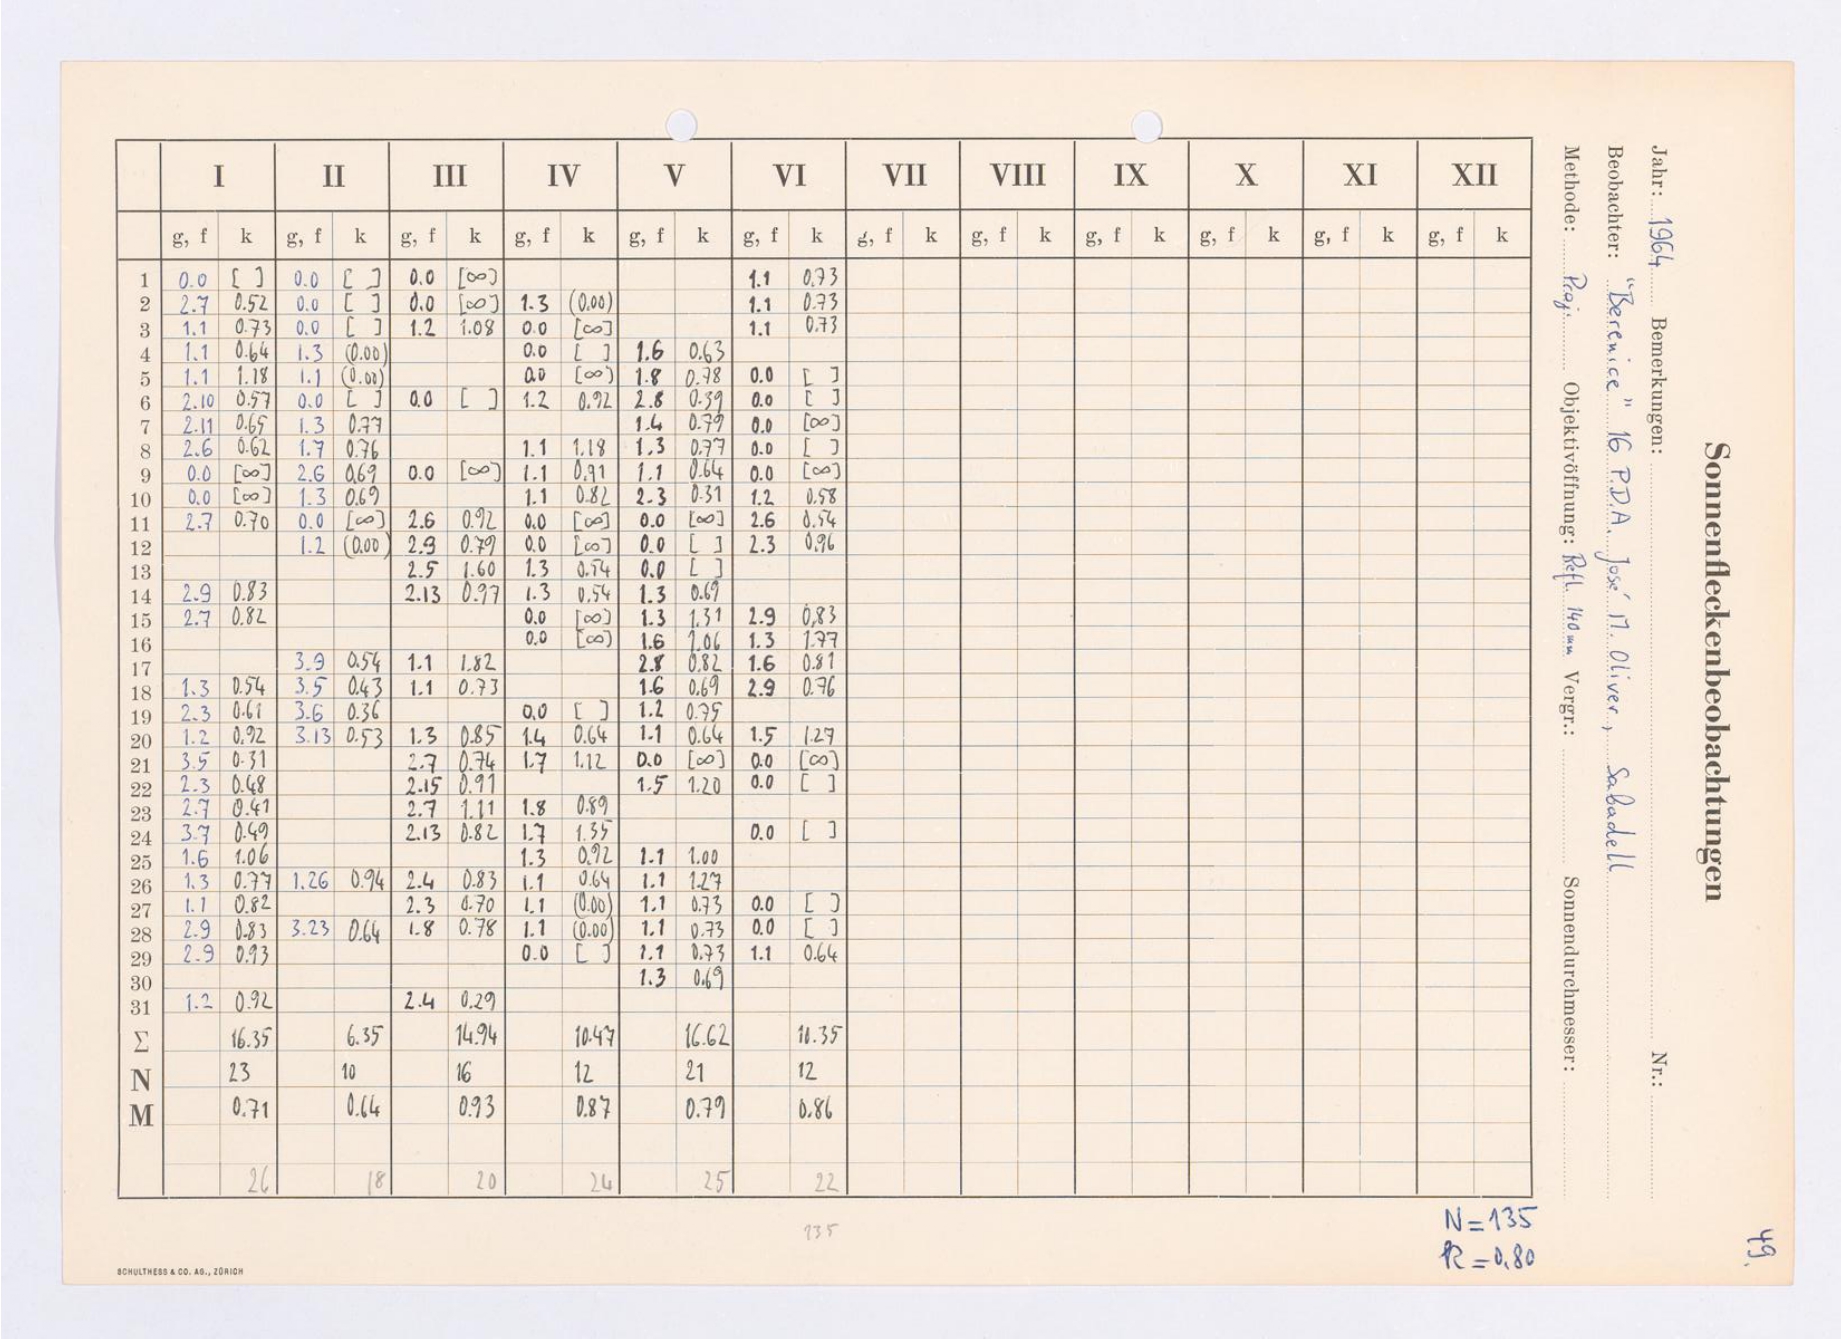 Sonnenfleckenbeobachtungen
Jahr: 1964 Bemerkungen: Nr.:
Beobachter: "Berenice" 16 P.D.A. José M. Oliver, Sabadell
Methode: Proj. Objektivöffnung: Refl. 140mm Vergr.: Sonnendurchmesser:
I II III IV V VI VII VIII IX X XI XII
g, f k g, f k g, f k g, f k g, f k g, f k g, f k g, f k g, f k g, f k g, f k g, f k
1 0.0 [ ] 0.0 [ ] 0.0 [∞] 1.1 0.73
2 2.7 0.52 0.0 [ ] 0.0 [∞] 1.3 (0.00) 1.1 0.73
3 1.1 0.73 0.0 [ ] 1.2 1.08 0.0 [∞] 1.1 0.73
4 1.1 0.64 1.3 (0.00) 0.0 [ ] 1.6 0.63
5 1.1 1.18 1.1 (0.00) 0.0 [∞) 1.8 0.78 0.0 [ ]
6 2.10 0.57 0.0 [ ] 0.0 [ ] 1.2 0.92 2.8 0.39 0.0 [ ]
7 2.11 0.65 1.3 0.77 1.4 0.79 0.0 [∞]
8 2.6 0.62 1.7 0.76 1.1 1.18 1.3 0.77 0.0 [ ]
9 0.0 [∞] 2.6 0.69 0.0 [∞] 1.1 0.91 1.1 0.64 0.0 [∞]
10 0.0 [∞] 1.3 0.69 1.1 0.82 2.3 0.31 1.2 0.58
11 2.7 0.70 0.0 [∞] 2.6 0.92 0.0 [∞] 0.0 [∞] 2.6 0.54
12 1.2 (0.00) 2.9 0.79 0.0 [∞] 0.0 [ ] 2.3 0.96
13 2.5 1.60 1.3 0.54 0.0 [ ]
14 2.9 0.83 2.13 0.97 1.3 0.54 1.3 0.69
15 2.7 0.82 0.0 [∞] 1.3 1.31 2.9 0.83
16 0.0 [∞] 1.6 1.06 1.3 1.77
17 3.9 0.54 1.1 1.82 2.8 0.82 1.6 0.81
18 1.3 0.54 3.5 0.43 1.1 0.73 1.6 0.69 2.9 0.76
19 2.3 0.61 3.6 0.36 0.0 [ ] 1.2 0.75
20 1.2 0.92 3.13 0.53 1.3 0.85 1.4 0.64 1.1 0.64 1.5 1.27
21 3.5 0.31 2.7 0.74 1.7 1.12 0.0 [∞] 0.0 [∞)
22 2.3 0.48 2.15 0.91 1.5 1.20 0.0 [ ]
23 2.7 0.41 2.7 1.11 1.8 0.89
24 3.7 0.49 2.13 0.82 1.7 1.35 0.0 [ ]
25 1.6 1.06 1.3 0.92 1.1 1.00
26 1.3 0.77 1.26 0.94 2.4 0.83 1.1 0.64 1.1 1.27
27 1.1 0.82 2.3 0.70 1.1 (0.00) 1.1 0.73 0.0 [ ]
28 2.9 0.83 3.23 0.64 1.8 0.78 1.1 (0.00) 1.1 0.73 0.0 [ ]
29 2.9 0.93 0.0 [ ] 1.1 0.73 1.1 0.64
30 1.3 0.69
31 1.2 0.92 2.4 0.29
Σ 16.35 6.35 14.94 10.47 16.62 10.35
N 23 10 16 12 21 12
M 0.71 0.64 0.93 0.87 0.79 0.86
26 18 20 24 25 22
135
N=135
k=0.80
49
SCHULTHESS & CO. AG., ZÜRICH